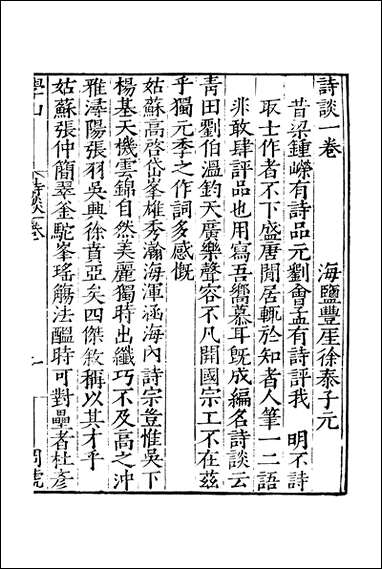 詩談一卷
海鹽豐厓徐泰子元
昔梁鍾嶸有詩品元劉會孟有詩評我　明不詩
取士作者不下盛唐閒居輒於知者人筆一二語
非敢肆評品也用寫吾嚮慕耳既成編名詩談云
青田劉伯溫鈞天廣樂聲容不凡開國宗工不在茲
乎獨元季之作詞多感慨
姑蘇高啓岱峯雄秀瀚海渾涵海內詩宗豈惟吳下
楊基天機雲錦自然美麗獨時出纖巧不及高之沖
雅潯陽張羽吳興徐賁亞矣四傑敘稱以其才乎
姑蘇張仲簡翠釜駝峯瑤觴法醞時可對壘者杜彥
學山
詩談一卷
一